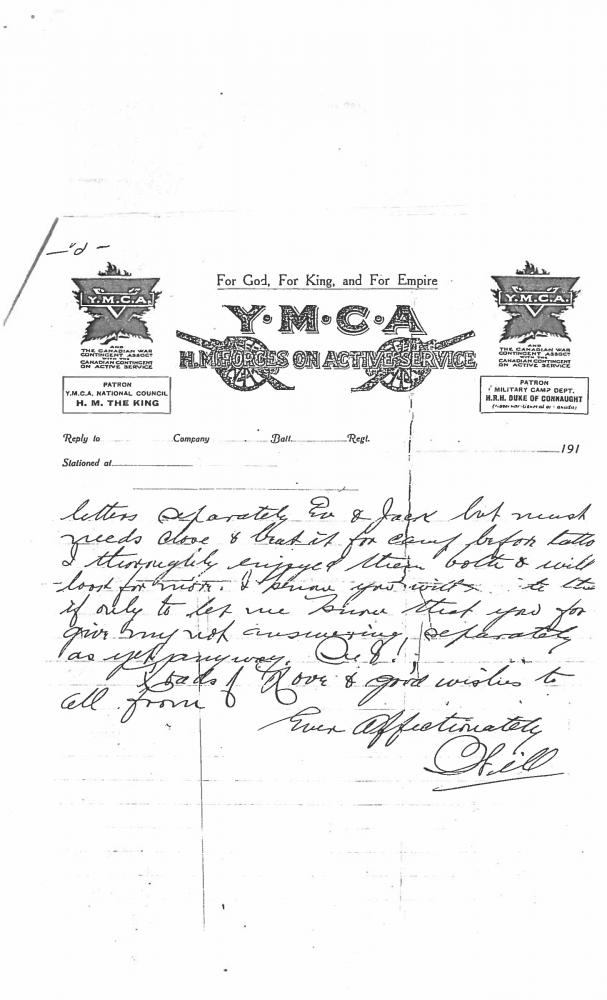 For God, For King, and For Empire
Y.M.C.A
H.M. FORCES ON ACTIVE SERVICE
Y.M.C.A.
AND
THE CANADIAN WAR
CONTINGENT ASSOCT
WITH THE
CANADIAN CONTINGENT
ON ACTIVE SERVICE
PATRON
Y.M.C.A. NATIONAL COUNCIL
H. M. THE KING
Y.M.C.A.
AND
THE CANADIAN WAR
CONTINGENT ASSOCT
WITH THE
CANADIAN CONTINGENT
ON ACTIVE SERVICE
PATRON
MILITARY CAMP DEPT.
H.R.H. DUKE OF CONNAUGHT
Reply to Company Batt. Regt.
191
Stationed at
letters separately Ev & Jack but must
needs close & beat it for camp before
I thoroughly enjoyed them both & will
look for more. I know you will
if only to let me know that you for
give my not answering separately
as yet anyway.
Loads of Love & good wishes to
all from
Ever Affectionately
Will